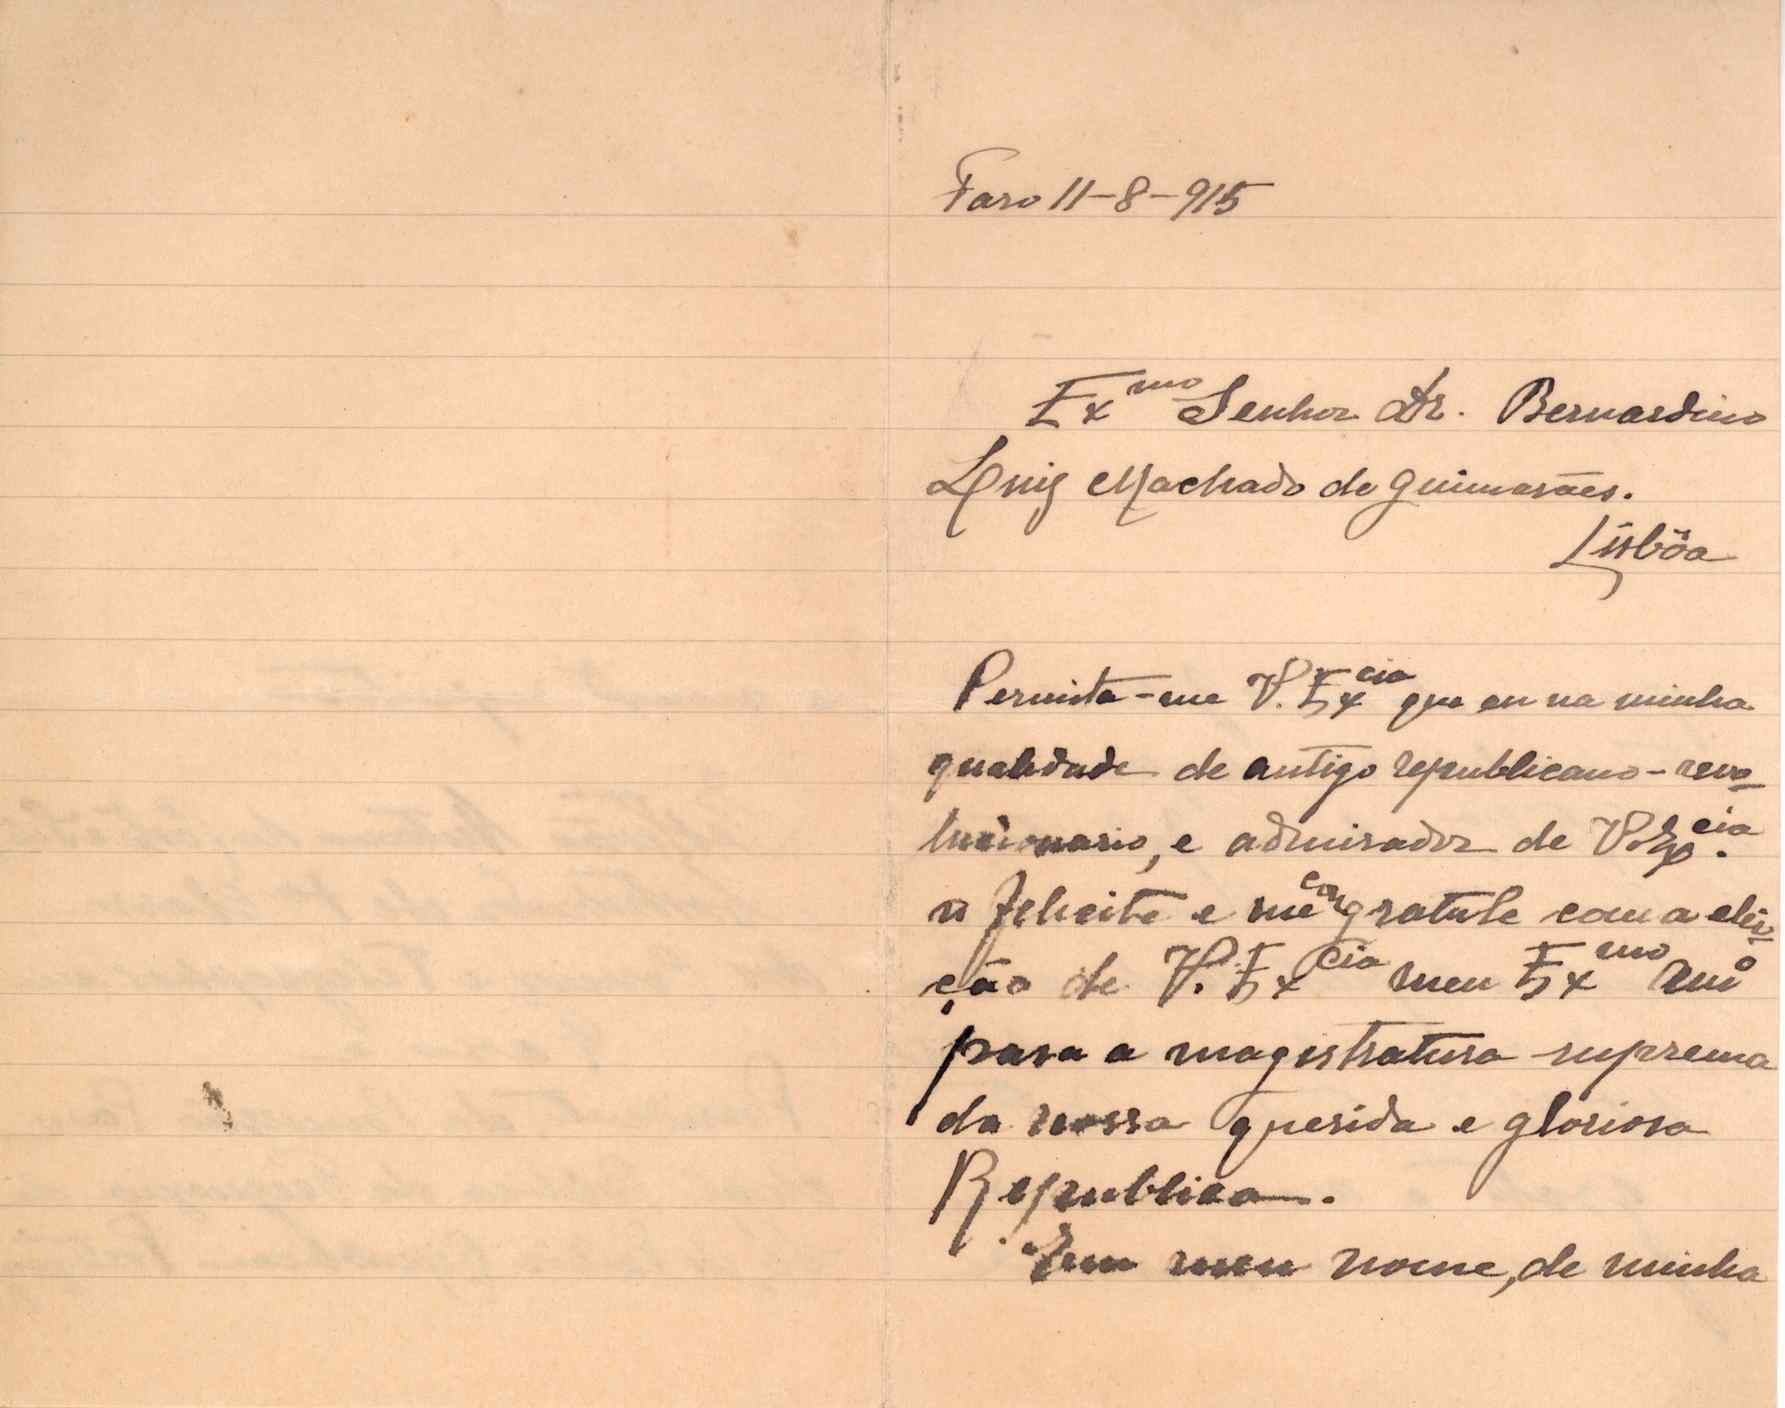 Faro 11-8-915
Exmo Senhor Dr. Bernardino
Luiz Machado de Guimarães.
Lisbôa
Permita-me V. Excia que eu na minha
qualidade de antigo republicano-revo-
lucionario, e admirador de V. Excia.
o felicite e me congratule com a elei-
ção de V. Excia meu Exmo Amo
para a magistratura suprema
da nossa querida e gloriosa
Republica.
Em meu nome, de minha